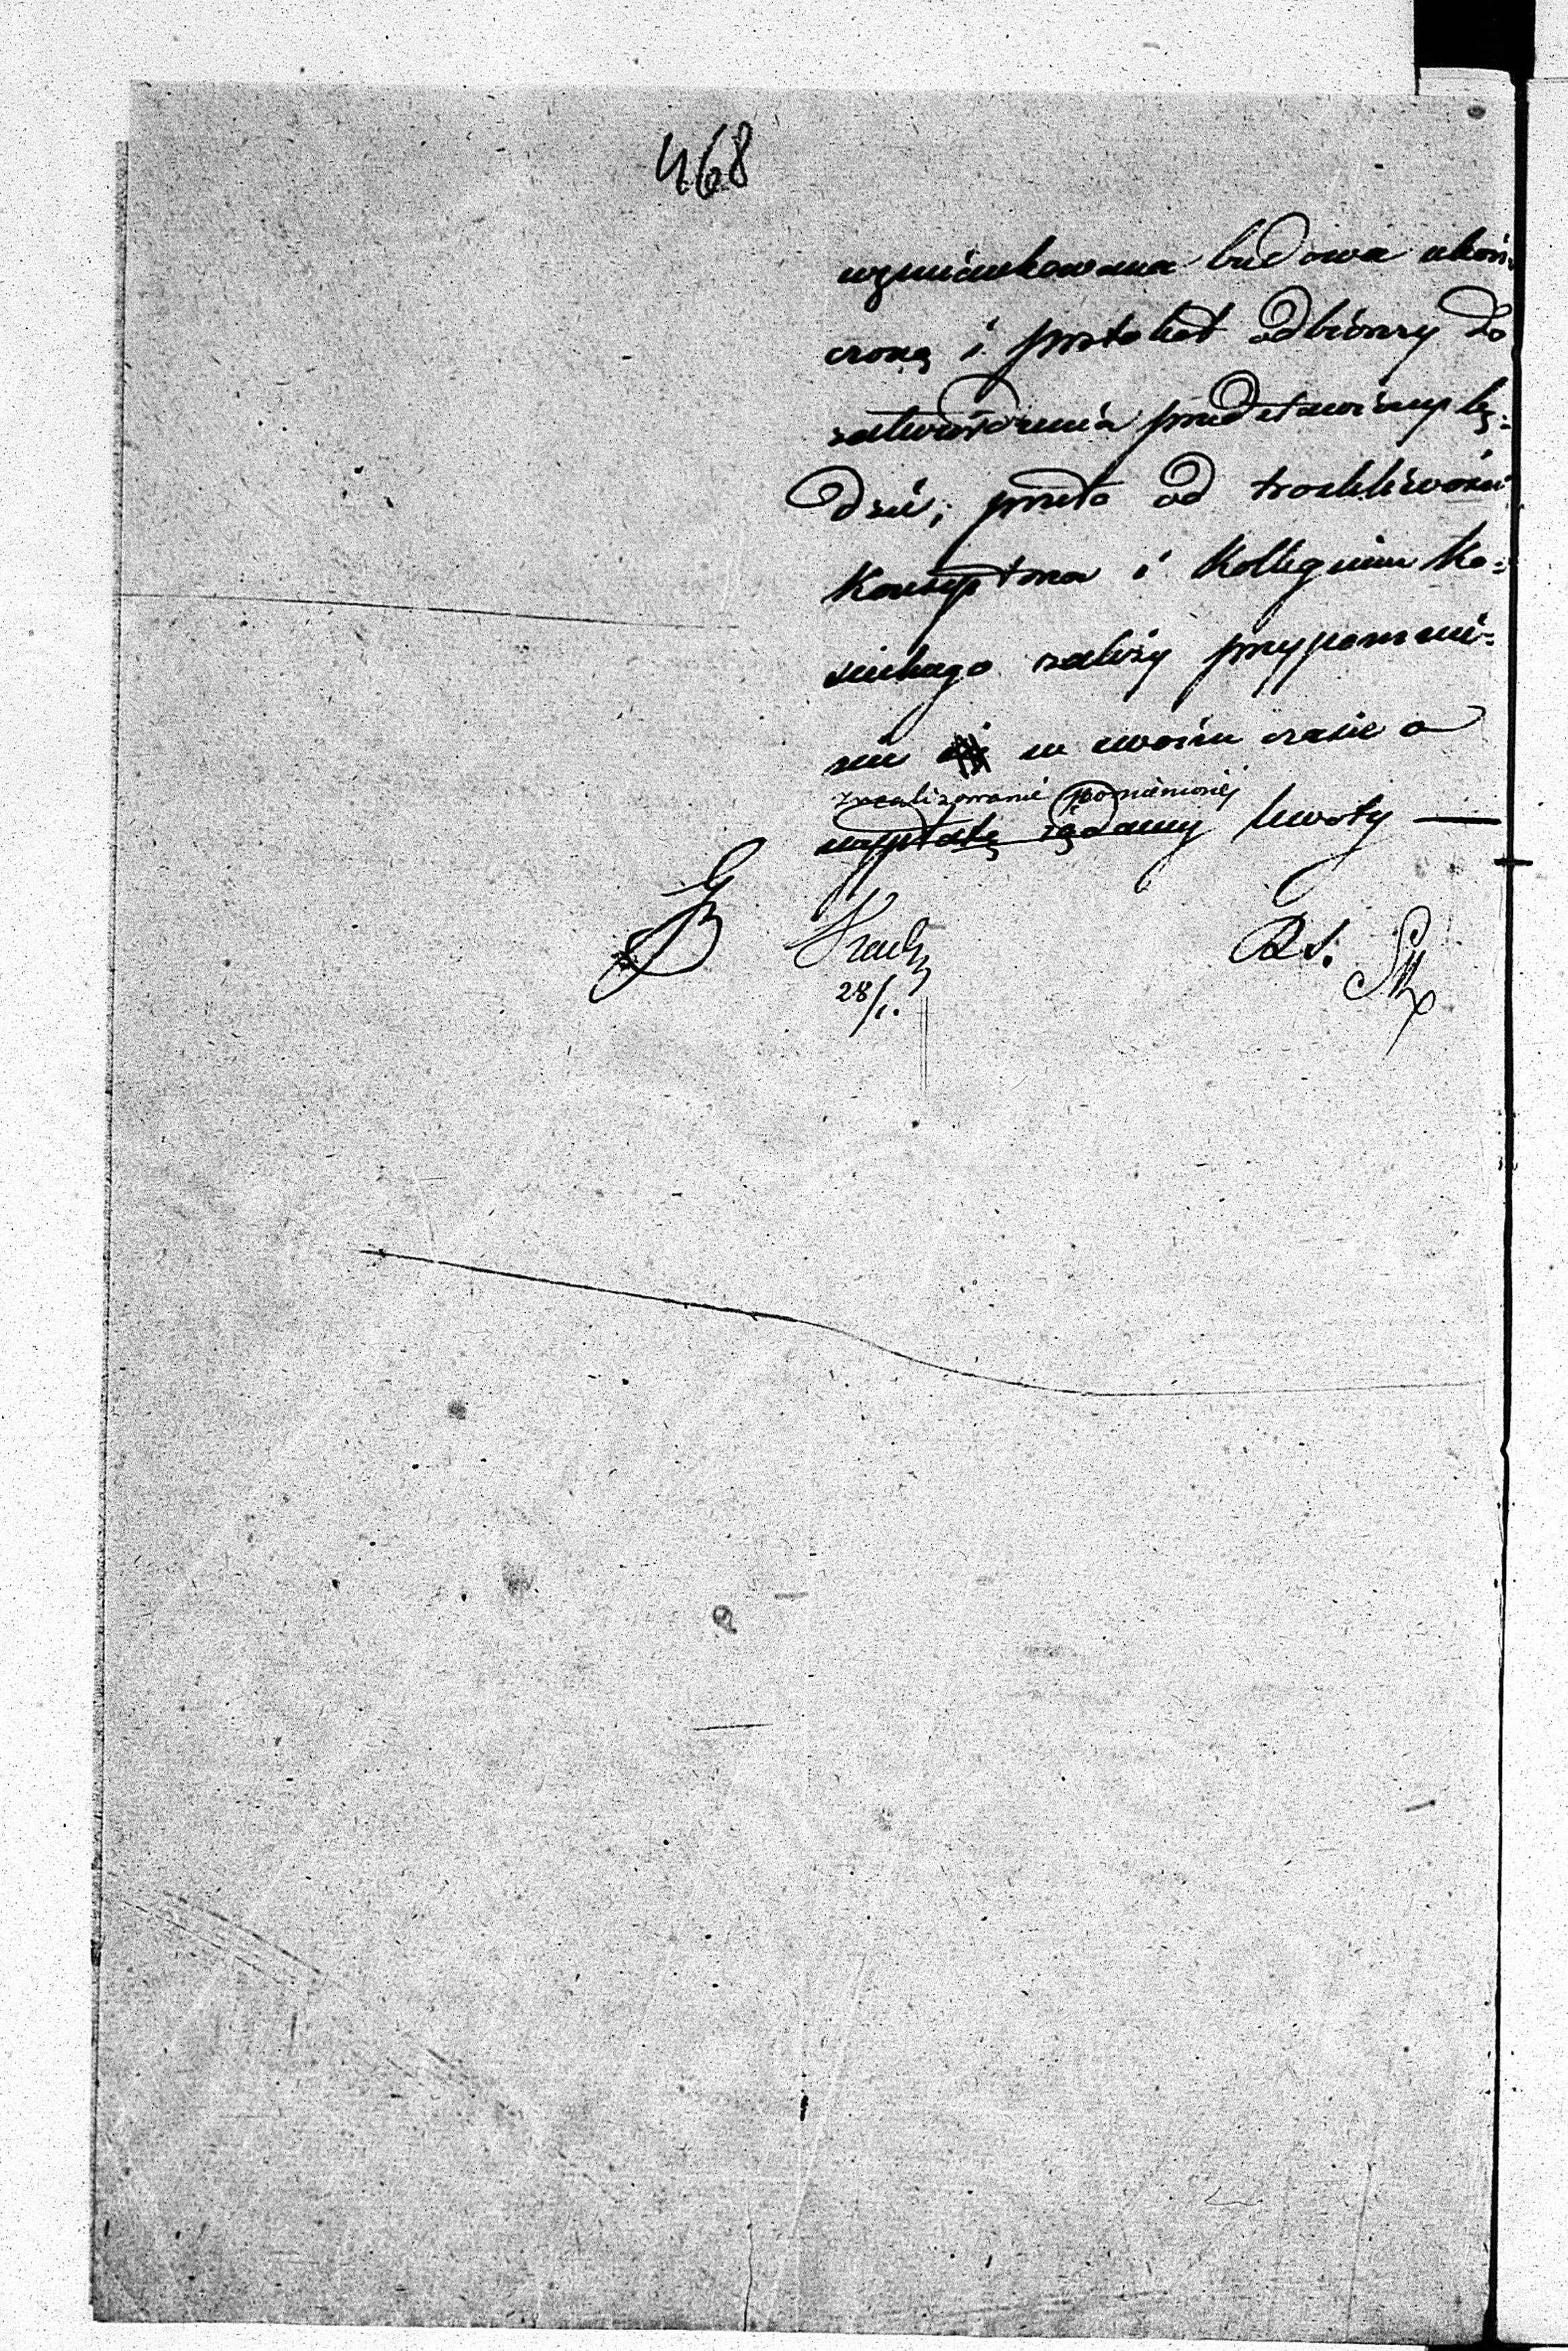 468
wzmiankowana budowa ukoń-
czoną i protokół odbiórczy do
zatwierdzenia przedstawiony bę-
dzie, przeto od troskliwości
Konsyptora i Kollegium Ko-
ścielnego zależy przypomnie-
nie w swoim czasie o
zrealizowanie pomienionéj
wypłatę żądaney kwoty —
28/1.